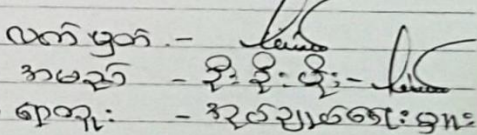 လက်မှတ် -
အမည် - စိုး စိုး မိုး -
ရာထူး - အုပ်ချုပ်ရေးမှူး